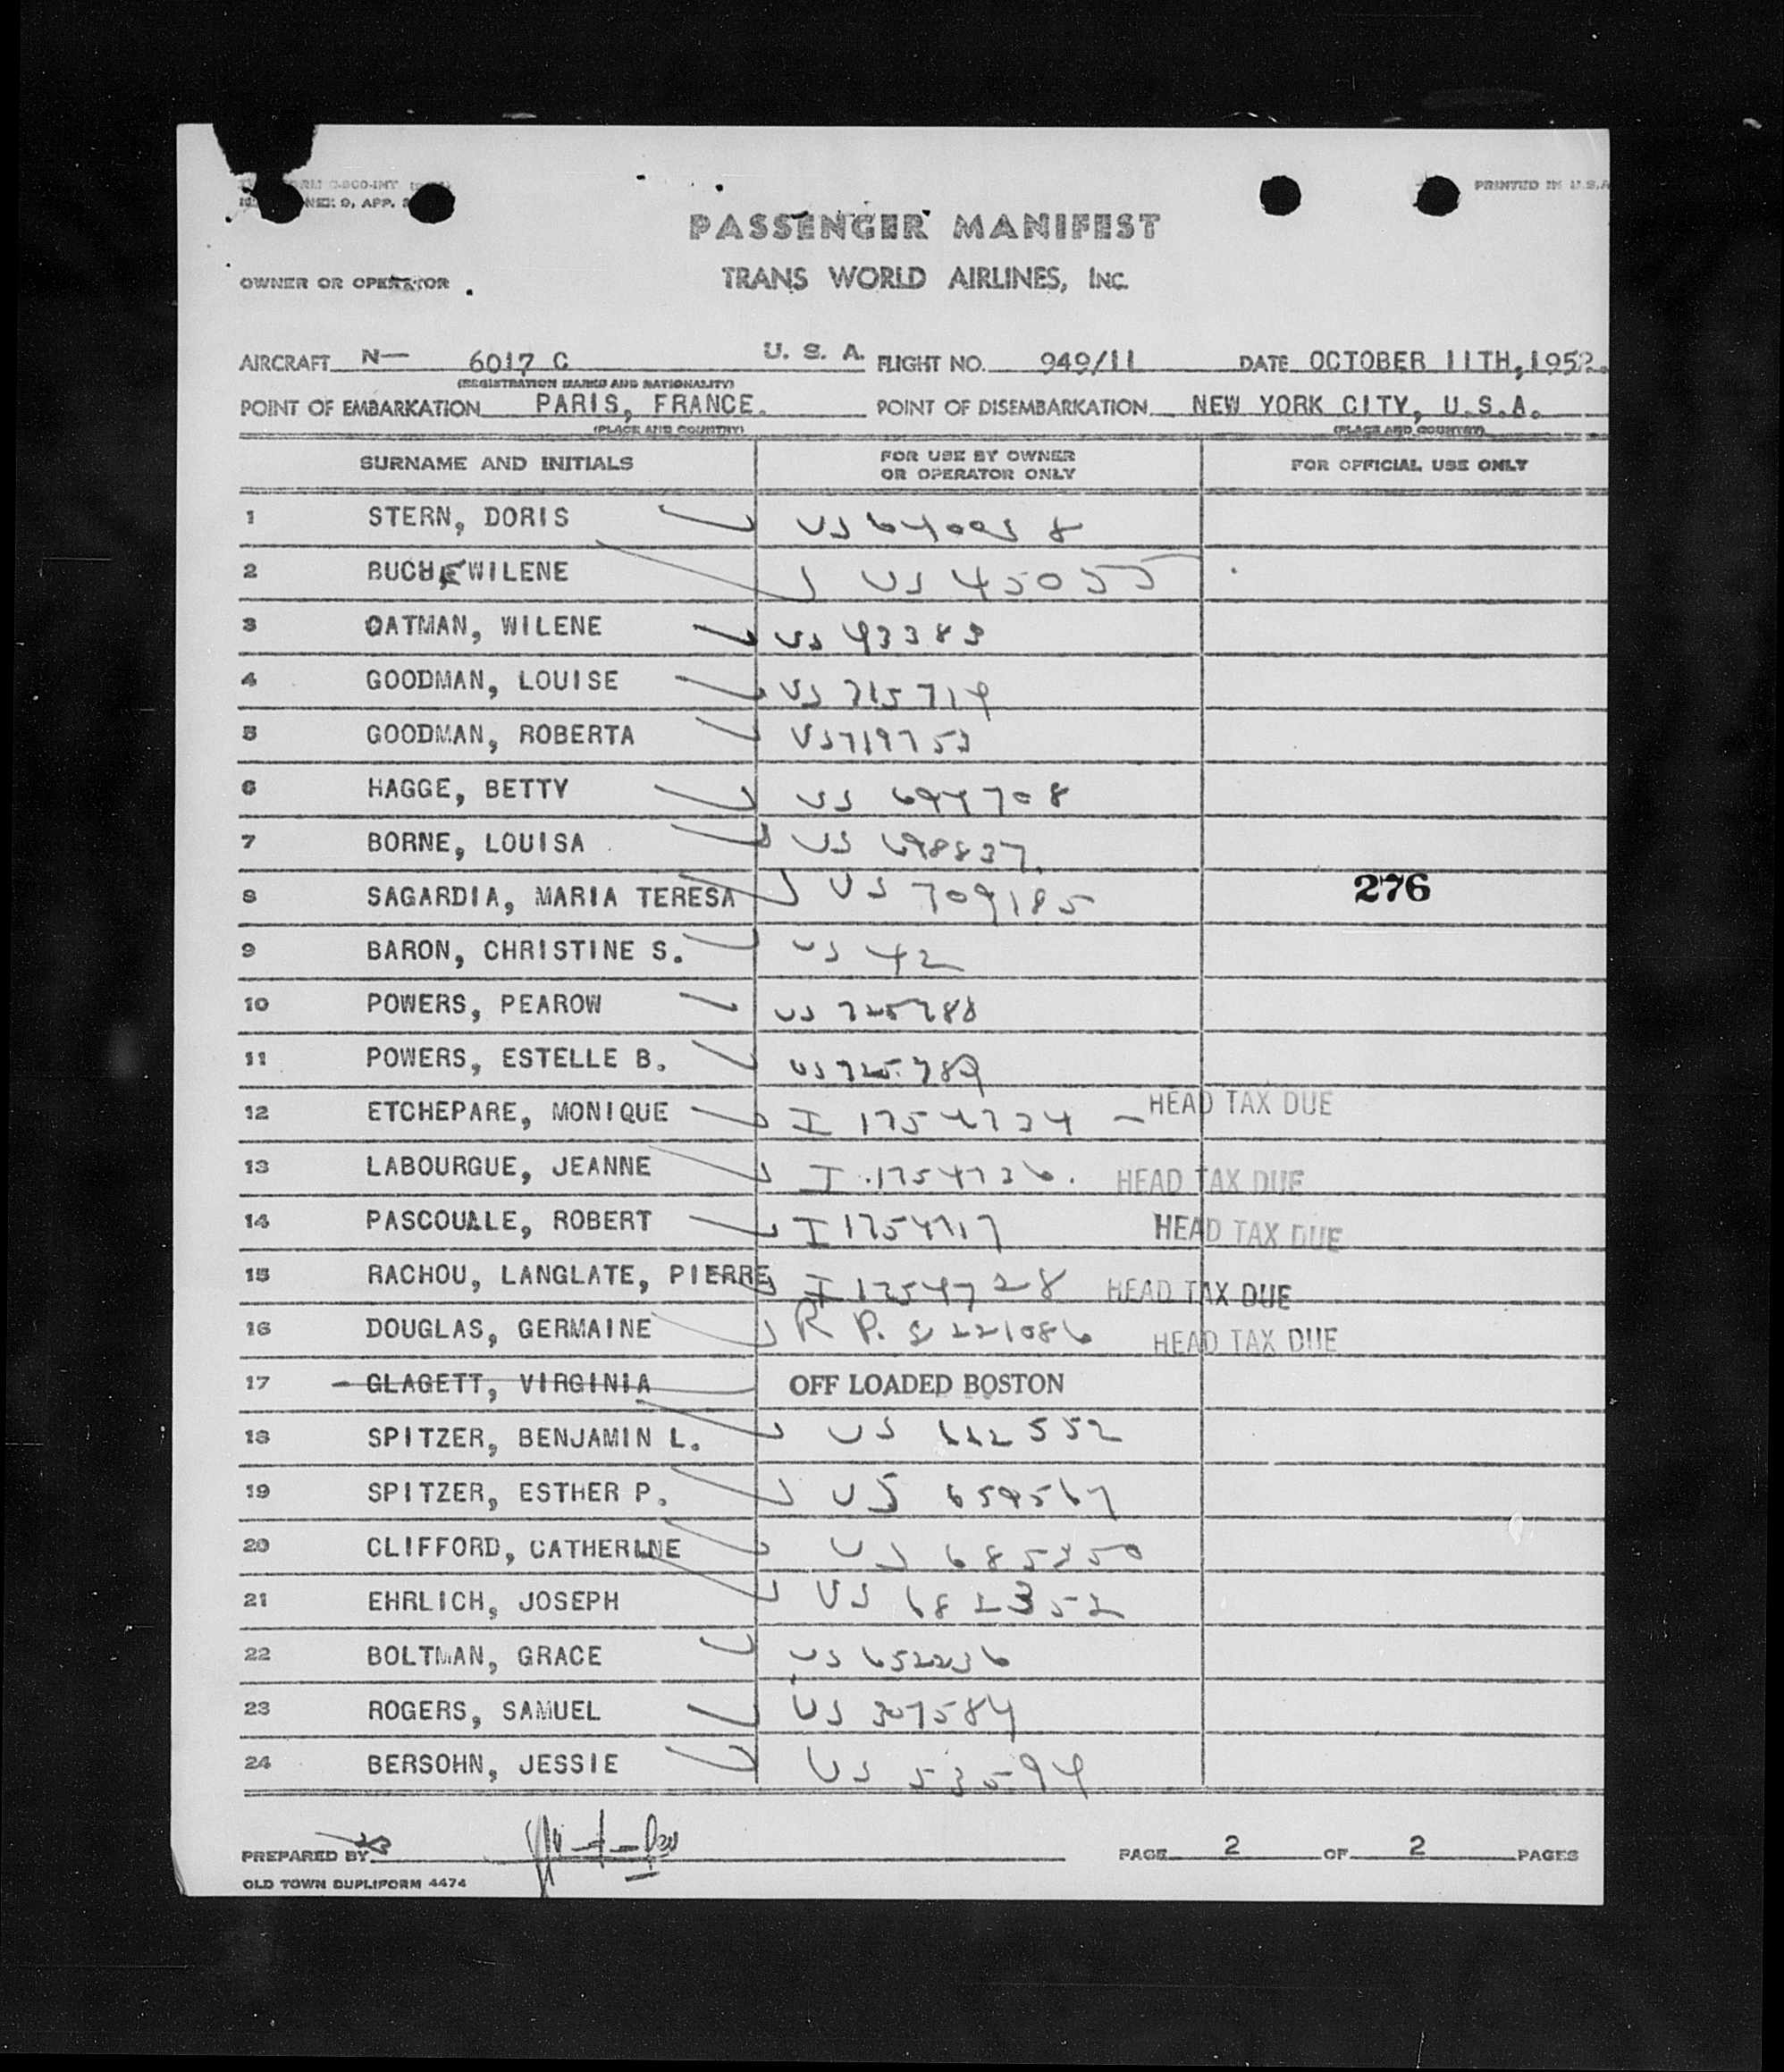 PRINTED IN U.S.A
PASSENGER MANIFEST
TRANS WORLD AIRLINES, INC.
OWNER OR OPERATOR
AIRCRAFT N— 6017 C U. S. A. FLIGHT NO. 949/11 DATE OCTOBER 11TH, 1952.
(REGISTRATION MARKS AND NATIONALITY)
POINT OF EMBARKATION PARIS, FRANCE. POINT OF DISEMBARKATION NEW YORK CITY, U.S.A.
(PLACE AND COUNTRY) (PLACE AND COUNTRY)
SURNAME AND INITIALS FOR USE BY OWNER OR OPERATOR ONLY FOR OFFICIAL USE ONLY
1 STERN, DORIS US
2 BUCHE WILENE US 45055
3 OATMAN, WILENE US 93383
4 GOODMAN, LOUISE US 715719
5 GOODMAN, ROBERTA US 719753
6 HAGGE, BETTY US 694708
7 BORNE, LOUISA US 698837
8 SAGARDIA, MARIA TERESA US 709185 276
9 BARON, CHRISTINE S. US 42
10 POWERS, PEAROW US 725788
11 POWERS, ESTELLE B. US 725789
12 ETCHEPARE, MONIQUE I 1754724 — HEAD TAX DUE
13 LABOURGUE, JEANNE I 1754726. HEAD TAX DUE
14 PASCOUALLE, ROBERT I 1754717 HEAD TAX DUE
15 RACHOU, LANGLATE, PIERRE I 1754728 HEAD TAX DUE
16 DOUGLAS, GERMAINE R P. 221086 HEAD TAX DUE
17 GLAGETT, VIRGINIA OFF LOADED BOSTON
18 SPITZER, BENJAMIN L. US 662552
19 SPITZER, ESTHER P. US 659567
20 CLIFFORD, CATHERINE US 685350
21 EHRLICH, JOSEPH US 682352
22 BOLTMAN, GRACE US 652236
23 ROGERS, SAMUEL US 307584
24 BERSOHN, JESSIE US 53594
PREPARED BY PAGE 2 OF 2 PAGES
OLD TOWN DUPLIFORM 4474